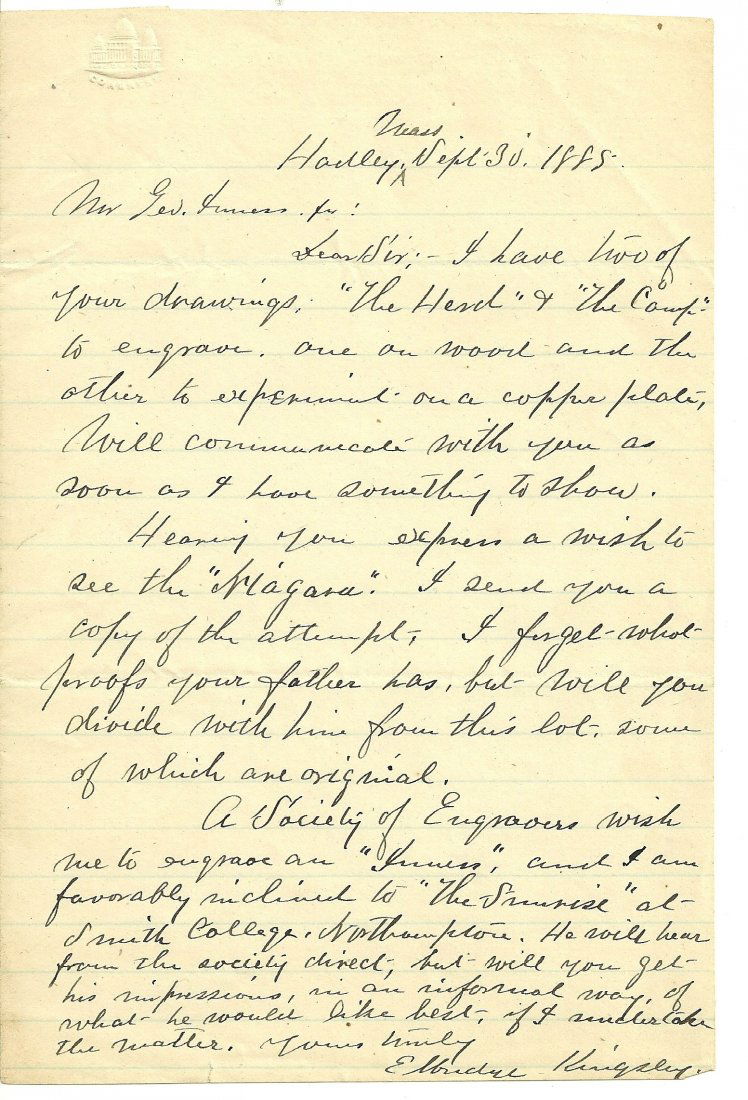 CONGRESS
Mass
Hadley, Sept 30. 1885.
Mr Geo. Inness. Jr:
Dear Sir;- I have two of
your drawings. "The Herd" & "The Camp"
to engrave. one on wood and the
other to experiment on a copper plate,
Will communicate with you as
soon as I have something to show.
Hearing you express a wish to
see the "Niagara". I send you a
copy of the attempt, I forget what
proofs your father has, but will you
divide with him from this lot. some
of which are original.
A Society of Engravers wish
me to engrave an "Inness", and I am
favorably inclined to "The Sunrise" at
Smith College, Northampton. He will hear
from the society direct, but will you get
his impressions, in an informal way, of
what he would like best, if I undertake
the matter. Yours truly
Elbridge Kingsley.